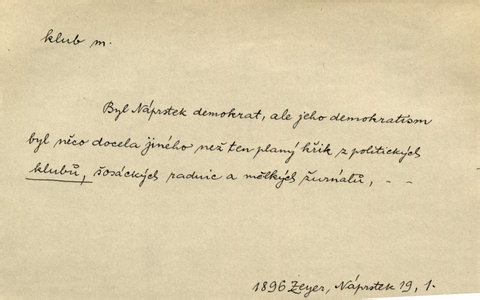 klub m.
Byl Náprstek demokrat, ale jeho demokratism
byl něco docela jiného než ten planý křik z politických
klubů, šosáckých radnic a mělkých žurnálů, – –
1896 Zeyer, Náprstek 19, 1.